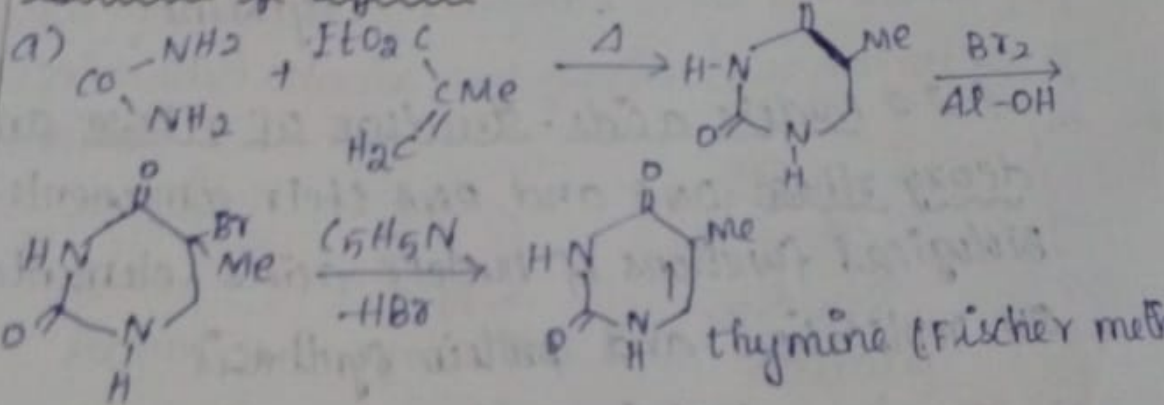 a) CO NH2 NH2 + EtO2C CMe H2C Δ H-N O Me O N H Br2 Al-OH
HN O Br Me O N H C5H5N -HBr HN O Me O N H thymine (Fischer